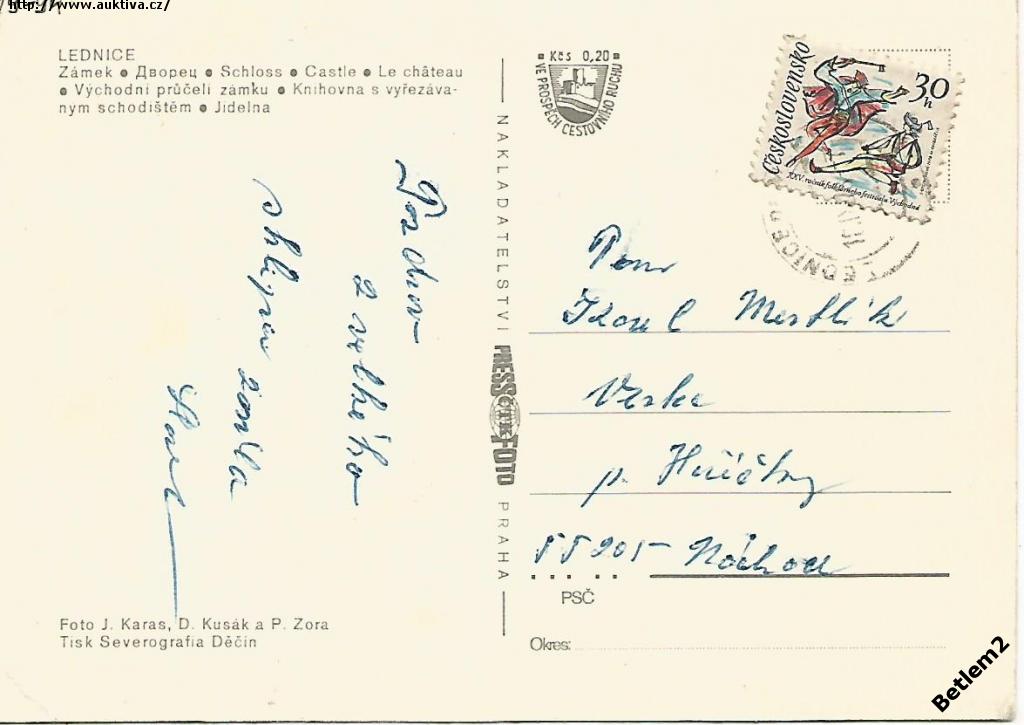 http://www.auktiva.cz/
LEDNICE
Zámek ● Дворец ● Schloss ● Castle ● Le château
● Východní průčelí zámku ● Knihovna s vyřezáva-
ným schodištěm ● Jídelna
Kčs 0,20
VE PROSPĚCH CESTOVNÍHO RUCHU
Československo
30h
XXV. ročník folklórneho festivalu Východná
LEDNICE
Pozdrav
z velkého
zasílá
NAKLADATELSTVÍ PRESSFOTO PRAHA
ČTK
Pan
Karel Mestlík
p.
55205 Náchod
PSČ
Okres:
Foto J. Karas, D. Kusák a P. Zora
Tisk Severografia Děčín
Betlem2